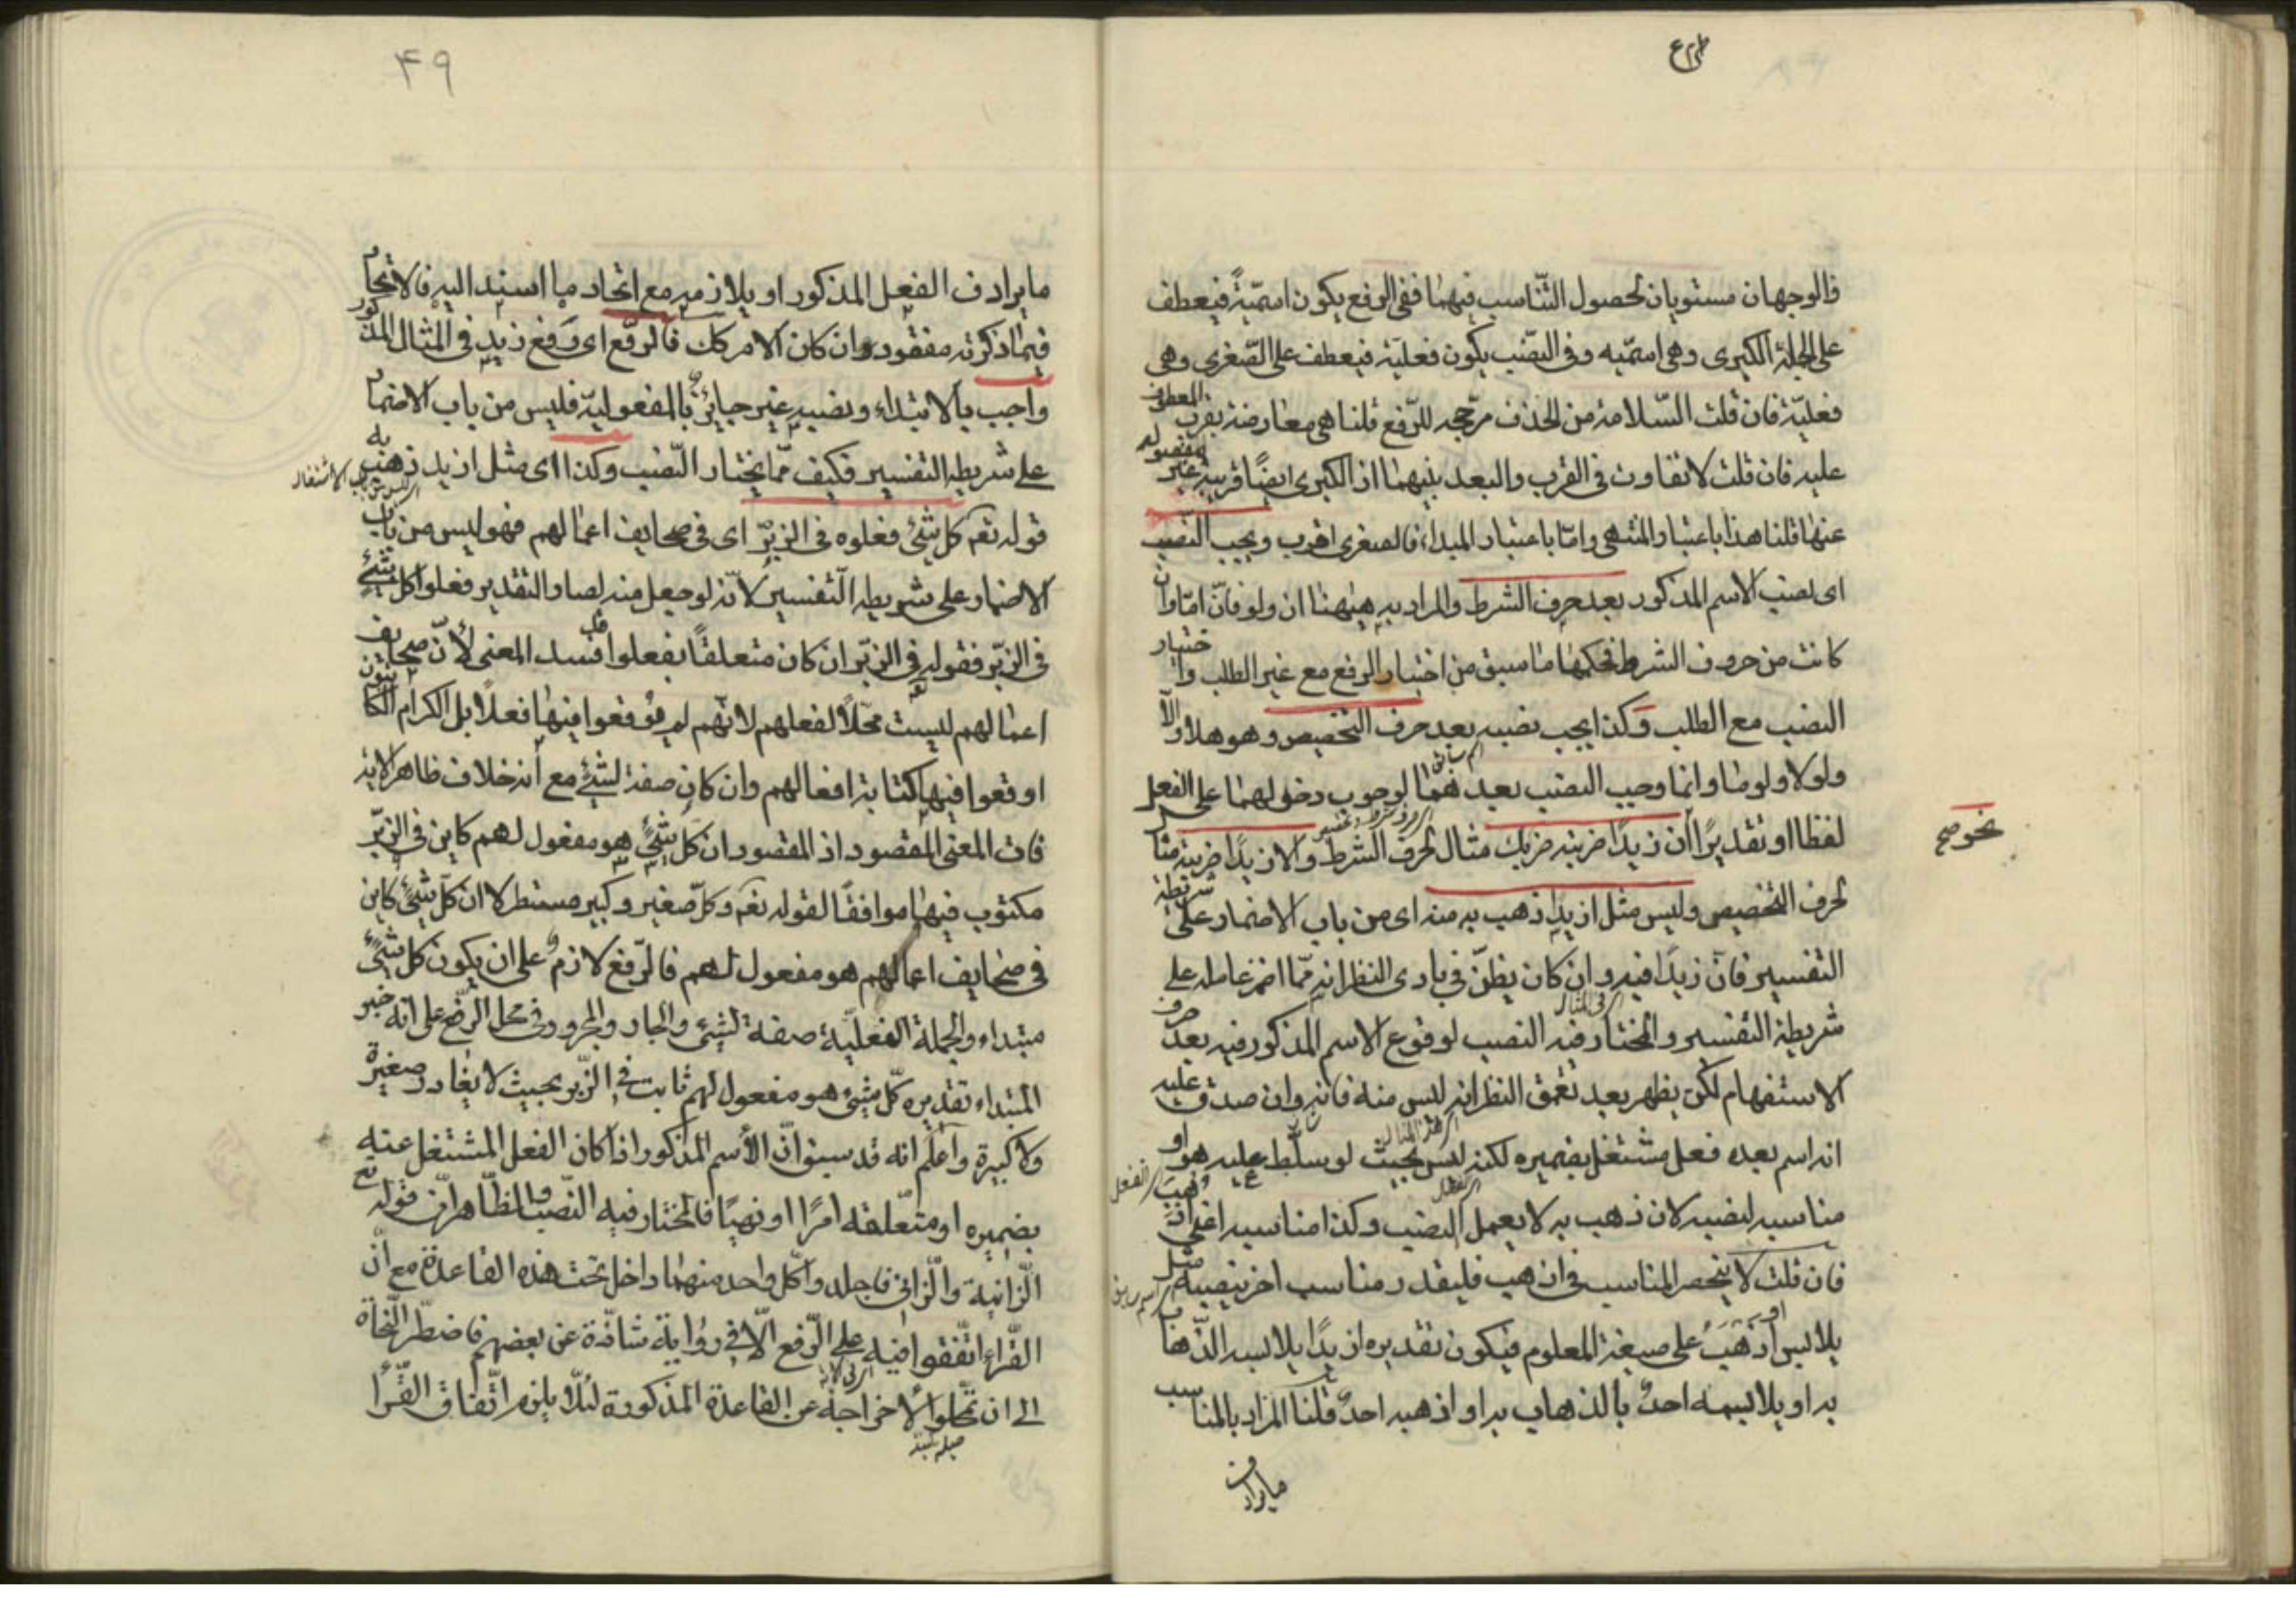 فالوجهان مستويان لحصول التّناسب فيهما ففى الرفع يكون اسميّةً فيعطف
على الجملة الكبرى وهى اسميّه وفى النصب يكون فعليّة فيعطف على الصّغرى وهى
فعليّة فان قلت السّلامة من الحذف مرّجحه للرّفع قلنا هى معارضة بقرب المعطوف
عليه فان قلت لا تفاوت فى القرب والبعد بينهما اذ الكبرى ايضًا قريبة غير مفصوله
عنها قلنا هذا باعتبار المنتهى وامّا باعتبار المبداء فالصغرى اقرب ويجب النّصب
اى نصب الاسم المذكور بعد حرف الشرط والمراد به هيٰهنا ان ولو فانّ امّا وان
كانت من حروف الشرط فحكمها ما سبق من اختيار الرفع مع غير الطلب واختيار
النصب مع الطلب وكذا يجب نصبه بعد حرف التحضيض وهو هلا والّا
ولولا ولوما وانما وجب النصب بعدهما لوجوب دخولهما على الفعل
لفظا او تقديرًا ان زيدًا ضربته ضربك مثال لحرف الشرط والا زيدًا ضربته مثال
لحرف التحضيض وليس مثل ازيدٌ ذهب به منه اى من باب الاضمار على شريطة
التفسير فانّ زيدًا فيه وان كان يظنّ فى بادى النظر انه ممّا اضمر عامله على
شريطة التفسير والمختار فيه النصب لوقوع الاسم المذكور فيه بعد حرف
الاستفهام لكن يظهر بعد تعمّق النظر انه ليس منه فانه وان صدق عليه
انه اسم بعده فعل مشتغل بضميره لكنه ليس بحيث لو سلّط عليه هو او
مناسبه لنصبه لان ذهب به لا يعمل النصب وكذا مناسبه اعنى اذهب
فان قلت لا ينحصر المناسب فى اذهب فليقدر مناسب اخر ينصبه مثل
يلابس او اذهَبَ على صيغة المعلوم فيكون تقديره ازيدًا يلابسه الذّهاب
به او يلابسه احدٌ بالذهاب به او اذهبه احدٌ قلنا المراد بالمناسب
ما يرادف
نحو صح
٤٩
ما يرادف الفعل المذكور او يلازمه مع اتّحاد ما اسند اليه فالاتحاد
فيما ذكرته مفقود وان كان الامر كك فالرّفع اى رفع زيد فى المثال المذكور
واجب بالابتداء ونصبه غير جائز بالمفعوليّة فليس من باب الاضمار
على شريطه التفسير فكيف ممّا يختار النّصب وكذا اى مثل ازيد ذهب به
قوله تعم كل شئ فعلوه فى الزبرّ اى فى صحايف اعمالهم فهو ليس من باب
الاضمار على شريطه التفسير لانّه لو جعل منه لصار التقدير فعلوا كل شئ
فى الزبّر فقوله فى الزبّر ان كان متعلقًا بفعلوا فسد المعنى لأنّ صحايف
اعمالهم ليست محّلًا لفعلهم لانّهم لم يوقعوا فيها فعلًا بل الكرام الكاتبون
اوقعوا فيها كتابة افعالهم وان كان صفة لشئ مع انه خلاف ظاهر الاية
فات المعنى المقصود اذ المقصود ان كل شئٍ هو مفعول لهم كاين فى الزبّر
مكتوب فيها موافقًا لقوله تعم وكلّ صغير وكبير مستطر لا ان كلّ شئ كاين
فى صحايف اعمالهم هو مفعول لهم فالرّفع لازم على ان يكون كل شئ
مبتداء والجملة الفعليّة صفة لشئ والجار والمجرور فى محل الرّفع على انه خبر
المبتداء تقديره كلّ شئ هو مفعول لهم ثابت فى الزّبر بحيث لا يغادر صغيرة
ولا كبيرة واعلم انه قد سبق انّ الأسم المذكور اذا كان الفعل المشتغل عنه
بضميره او متعّلقه امرًا او نهيًا فالمختار فيه النّصب والظّاهر انّ قوله تع
الزّانية والزّانى فاجلدوا كّل واحد منهما داخل تحت هذه القاعدة مع انّ
القرّاء اتّفقوا فيه على الرّفع الّا فى رواية شاذّة عن بعضهم فاضطّر النّحاة
الى ان تمحّلوا لأخراجه عن القاعدة المذكورة لئلّا يلزم اتّفاق القرّاء